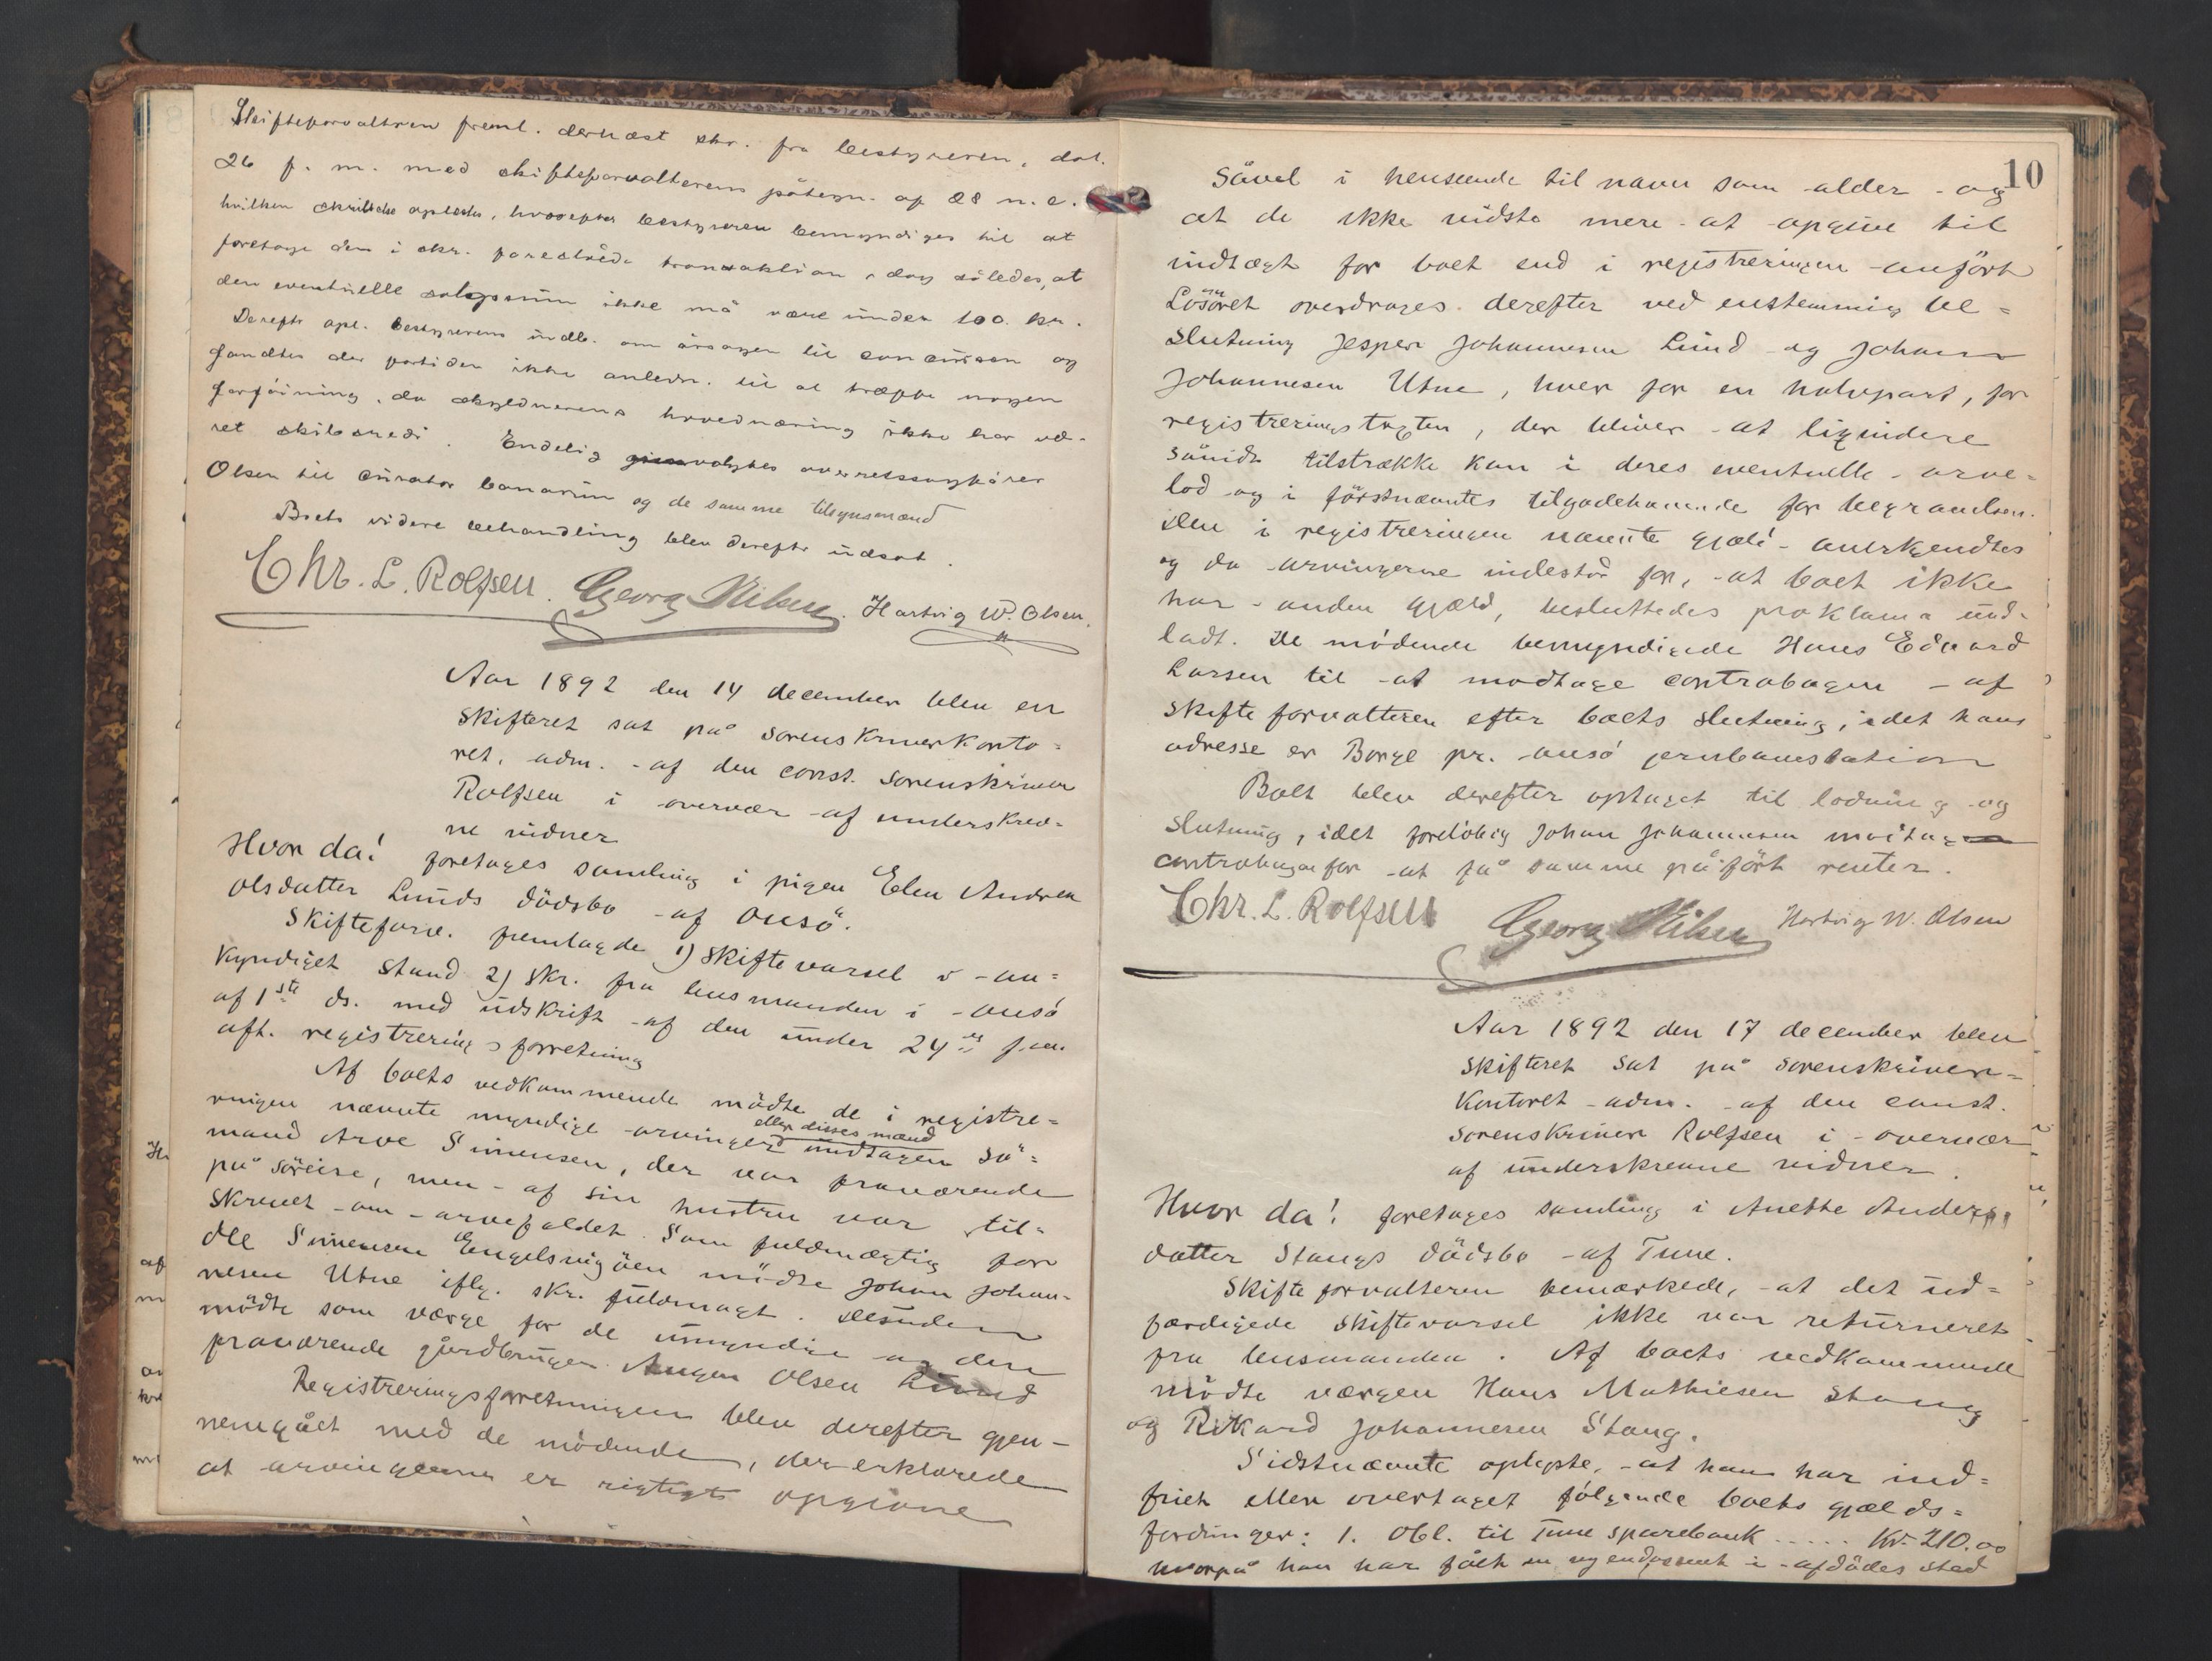 Skifteforvalteren freml. dernæst skr. fra bestyreren, dat.
26 f. m. med skifteforvalterens påtegn. af 28 n. e.
hvilken skrivelse oplæstes, hvorefter bestyreren bemyndiges til at
foretage den i skr. foreslåede transaktion, dog således, at
den eventuelle salgssum ikke må være under 100 kr.
Derefter opl. bestyrerens indb. om årsagen til concursen og
fandtes der fortiden ikke anledn. til at træffe nogen
forføining, da skyldnerens hovednæring ikke har væ-
ret skibsrederi. Endelig valgtes overretssagfører
Olsen til curator bonorum og de samme tilsynsmænd
Boets videre behandling blev derefter udsat.
Chr. L. Rolfsen. Georg Nilsen. Hartvig W. Olsen.
Aar 1892 den 14 december blev en
skifteret sat på sorenskriverkonto-
ret, adm. af den const. sorenskriver
Rolfsen i overvær af underskrev-
ne vidner
Hvor da! foretages samling i pigen Elen Andrea
Olsdatter Lunds dødsbo af Onsø.
Skifteforv. fremlagde 1) Skiftevarsel i an-
kyndiget stand 2) skr. fra lensmanden i Onsø
af 1ste ds. med udskrift af den under 24de f.m.
afh. registreringsforretning
Af boets vedkommende mødte de i registre-
ringen nævnte myndige arvinger eller disses mænd undtagen sø-
mand Arve Simensen, der var fraværende
på søreise, men af sin hustru var til-
skrevet om arvefaldet. Som fuldmægtig for
Ole Simensen Engelsvigøen mødte Johan Johan-
nesen Utne iflg. skr. fuldmagt. Desuden
mødte som værge for de umyndige og den
fraværende gårdbruger August Olsen Lund
Registreringsforretningen blev derefter gjen-
nemgået med de mødende, der erklærede
at arvingerne er rigtigt opgivne
10
såvel i henseende til navn som alder og
at de ikke vidste mere at opgive til
indtægt for boet end i registreringen anført
Løsøret overdrages derefter ved enstemmig be-
slutning Jesper Johannesen Lund og Johan
Johannesen Utne, hver for en halvpart, for
registreringstaxten, der bliver at liqvidere
såvidt tilstrække kan i deres eventuelle arve-
lod og i førstnævntes tilgodehavende for begravelsen.
Den i registreringen nævnte gjæld anerkjendtes
og da arvingerne indestod for, at boet ikke
har anden gjæld, besluttedes proklama und-
ladt. De mødende bemyndigede Hans Edvard
Larsen til at modtage contrabogen af
skifteforvalteren efter boets slutning, idet hans
adresse er Borge pr. Onsø jernbanestation
Boet blev derefter optaget til lodning og
slutning, idet foreløbig Johan Johannesen modtager
contrabogen for at få samme påført renter.
Chr. L. Rolfsen Georg Nilsen Hartvig W. Olsen
Aar 1892 den 17 december blev
skifteret sat på sorenskriver-
kontoret adm. af den const.
sorenskriver Rolfsen i overvær
af underskrevne vidner.
Hvor da! foretages samling i Anette Anders-
datter Stangs dødsbo af Tune.
Skifteforvalteren bemærkede, at det ud-
færdigede skiftevarsel ikke var returneret
fra lensmanden. Af boets vedkommende
mødte værgen Hans Mathiesen Stang
og Rikard Johannesen Stang.
Sidstnævnte oplyste, at han har ind-
friet eller overtaget følgende boets gjælds-
fordringer: 1. Obl. til Tune sparebank ..... Kr. 210.00
hvorpå han har fået en ny endossent i afdødes sted